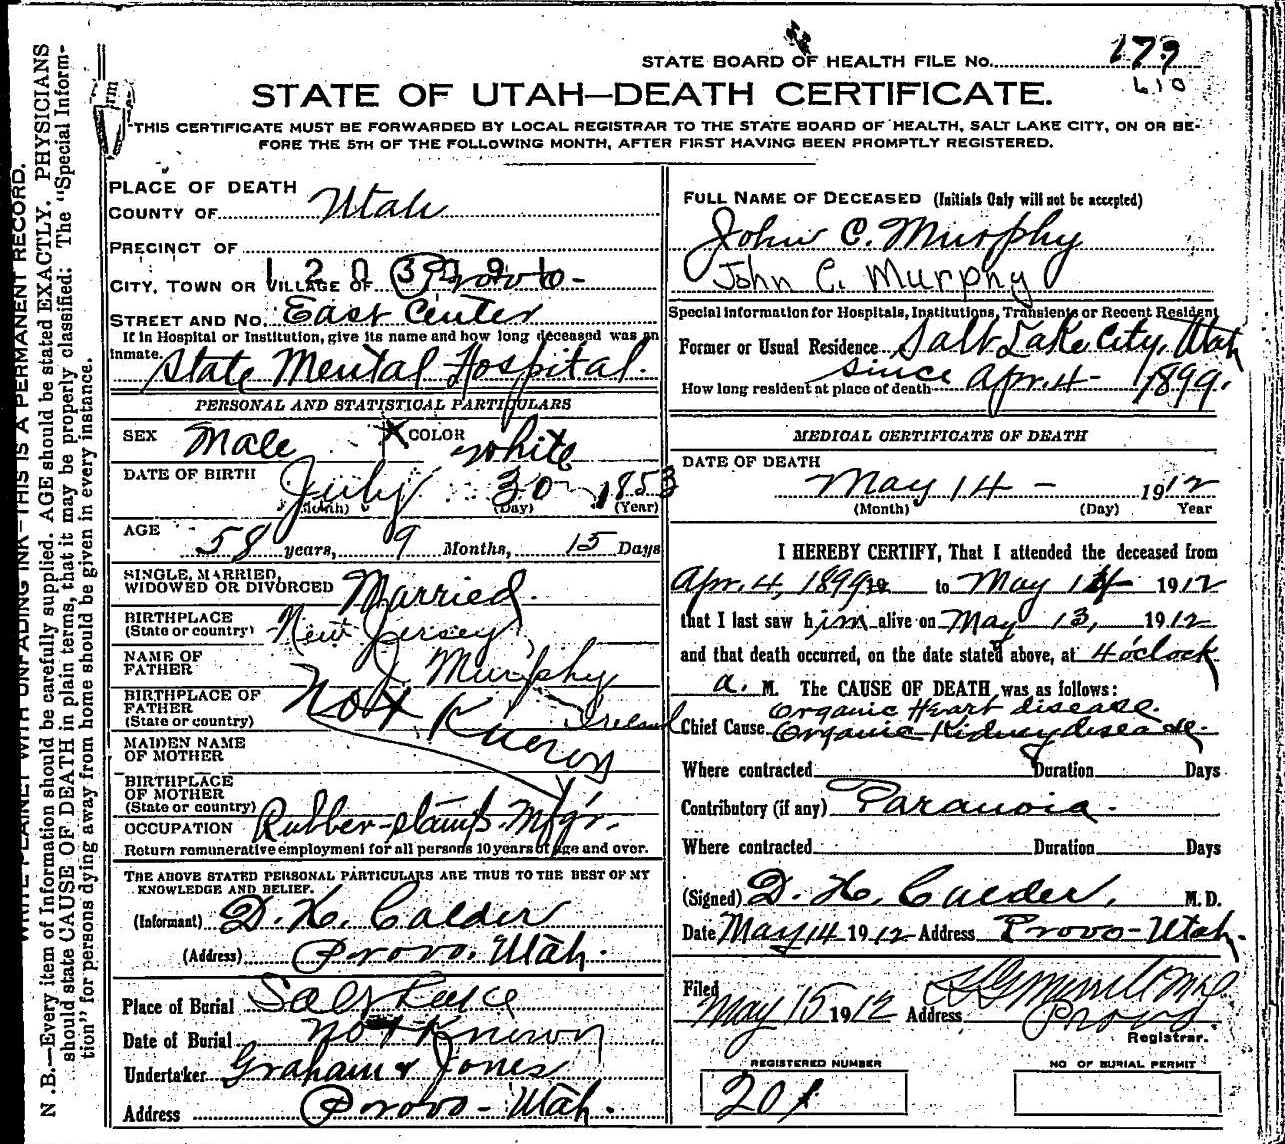 STATE BOARD OF HEALTH FILE No. 179
610
STATE OF UTAH—DEATH CERTIFICATE.
THIS CERTIFICATE MUST BE FORWARDED BY LOCAL REGISTRAR TO THE STATE BOARD OF HEALTH, SALT LAKE CITY, ON OR BE-
FORE THE 5TH OF THE FOLLOWING MONTH, AFTER FIRST HAVING BEEN PROMPTLY REGISTERED.
PLACE OF DEATH
COUNTY OF Utah
PRECINCT OF
CITY, TOWN OR VILLAGE OF Provo-
STREET AND No. East Center
If in Hospital or Institution, give its name and how long deceased was an
inmate. State Mental Hospital.
PERSONAL AND STATISTICAL PARTICULARS
SEX Male COLOR White
DATE OF BIRTH July 30 1853
(Month) (Day) (Year)
AGE 58 years, 9 Months, 15 Days
SINGLE, MARRIED,
WIDOWED OR DIVORCED Married.
BIRTHPLACE
(State or country) New Jersey
NAME OF
FATHER J. Murphy
BIRTHPLACE OF
FATHER
(State or country) Ireland
Not Known
MAIDEN NAME
OF MOTHER
BIRTHPLACE
OF MOTHER
(State or country)
OCCUPATION Rubber-stamp-Mfg'r.
Return remunerative employment for all persons 10 years of age and over.
THE ABOVE STATED PERSONAL PARTICULARS ARE TRUE TO THE BEST OF MY
KNOWLEDGE AND BELIEF.
(Informant) D. H. Calder
(Address) Provo, Utah.
Place of Burial Salt Lake
Date of Burial Not Known
Undertaker Graham & Jones
Address Provo-Utah.
FULL NAME OF DECEASED (Initials Only will not be accepted)
John C. Murphy
John C. Murphy
Special information for Hospitals, Institutions, Transients or Recent Resident
Former or Usual Residence Salt Lake City, Utah
How long resident at place of death since Apr. 4- 1899.
MEDICAL CERTIFICATE OF DEATH
DATE OF DEATH
May 14 - 1912
(Month) (Day) Year
I HEREBY CERTIFY, That I attended the deceased from
Apr. 4, 1899 to May 14 1912
that I last saw him alive on May 13, 1912
and that death occurred, on the date stated above, at 4 o'clock
a. M. The CAUSE OF DEATH was as follows:
Organic Heart disease.
Chief Cause Organic Kidney disease.
Where contracted Duration Days
Contributory (if any) Paranoia.
Where contracted Duration Days
(Signed) D. H. Calder, M.D.
Date May 14 1912 Address Provo-Utah.
Filed
May 15 1912 Address Provo
Registrar.
REGISTERED NUMBER
201
NO OF BURIAL PERMIT
WITH UNFADING INK—THIS IS A PERMANENT RECORD.
N.B.—Every item of Information should be carefully supplied. AGE should be stated EXACTLY. PHYSICIANS
should state CAUSE OF DEATH in plain terms, that it may be properly classified. The "Special Inform-
tion" for persons dying away from home should be given in every instance.